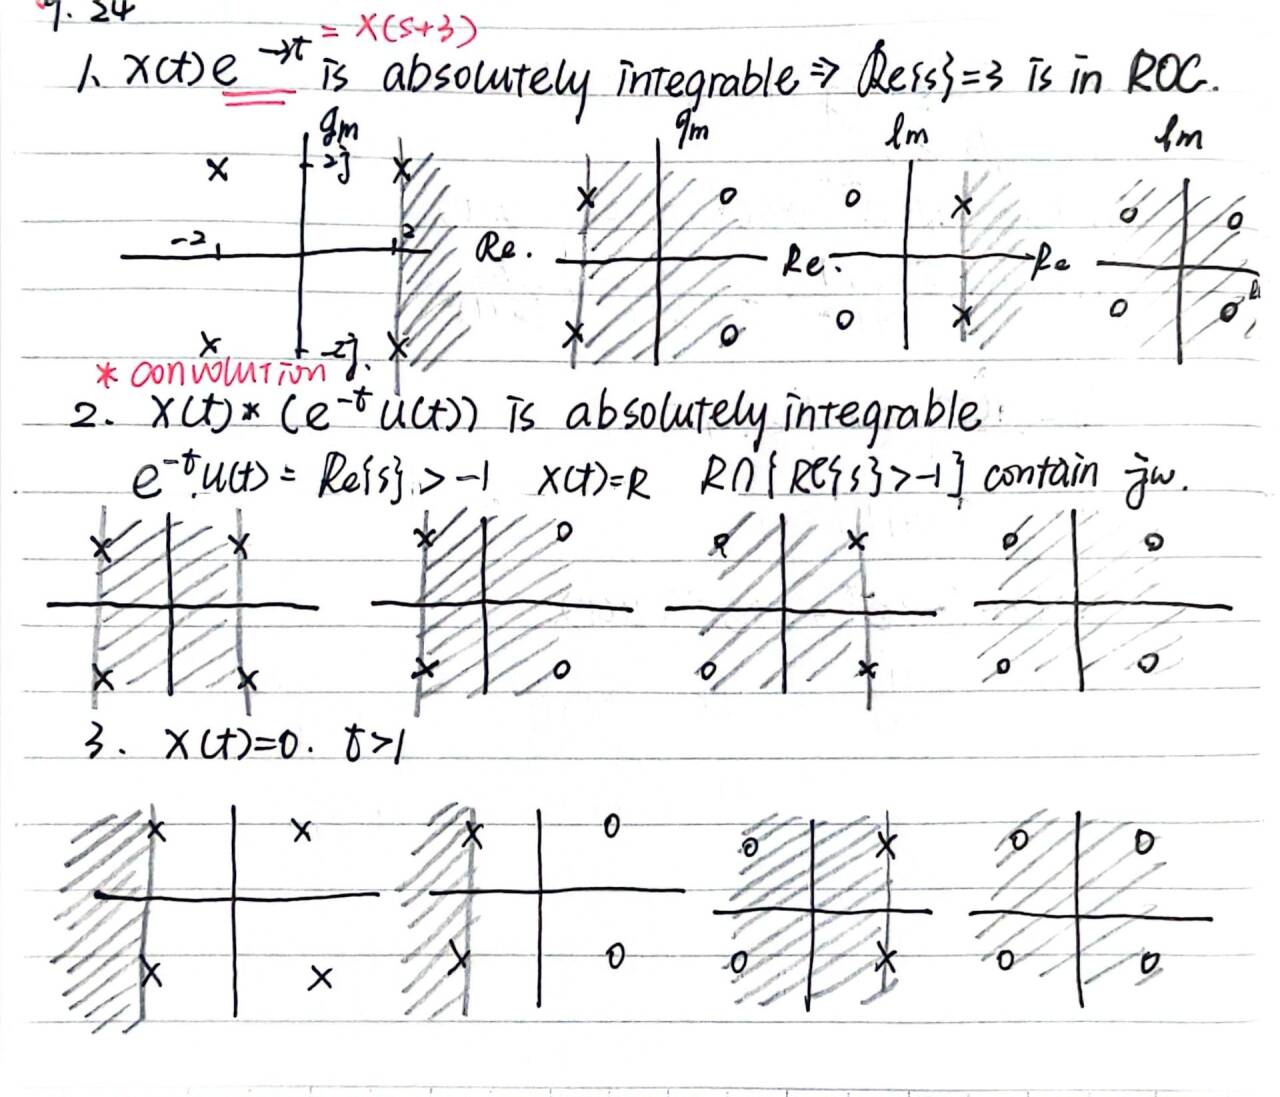 9.24
= X(s+3)
1. x(t)e^-3t is absolutely integrable ⇒ Re{s}=3 is in ROC.
Im Im Im Im
2j
-2 2 Re. Re. Re
-2j.
* convolution
2. x(t)*(e^-t u(t)) is absolutely integrable.
e^-t u(t) = Re{s} > -1 x(t)=R R∩{Re{s}>-1} contain jw.
3. x(t)=0. t>1